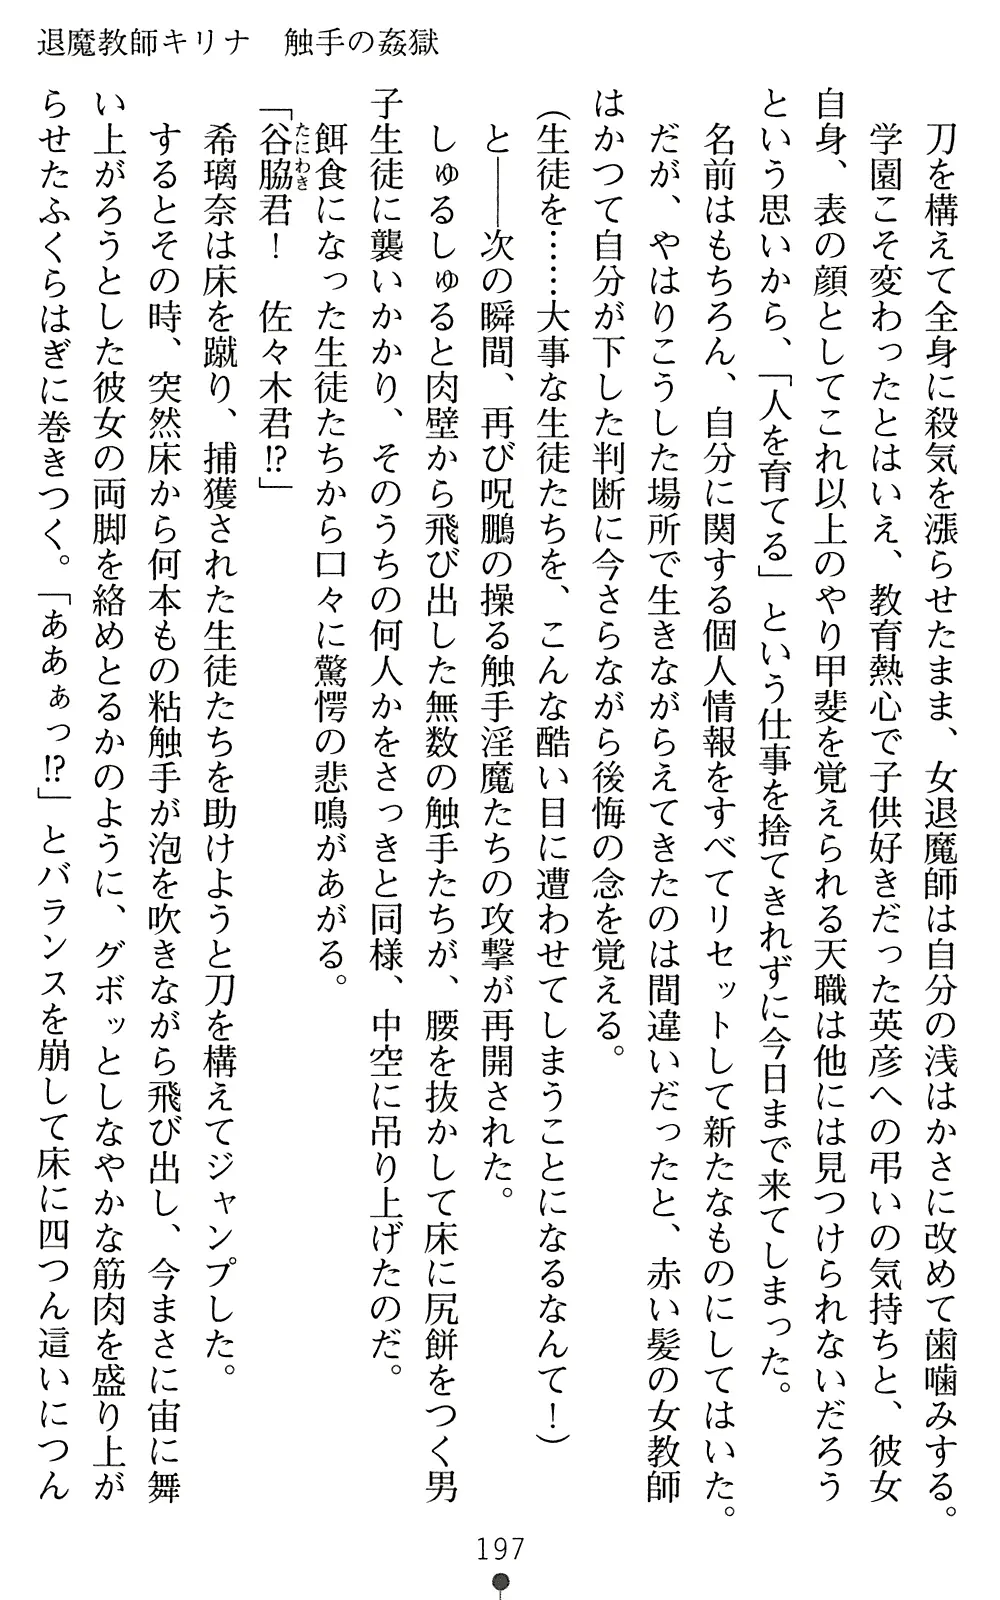 退魔教師キリナ　触手の姦獄
　刀を構えて全身に殺気を漲らせたまま、女退魔師は自分の浅はかさに改めて歯噛みする。
　学園こそ変わったとはいえ、教育熱心で子供好きだった英彦への弔いの気持ちと、彼女
自身、表の顔としてこれ以上のやり甲斐を覚えられる天職は他には見つけられないだろう
という思いから、「人を育てる」という仕事を捨てきれずに今日まで来てしまった。
　名前はもちろん、自分に関する個人情報をすべてリセットして新たなものにしてはいた。
　だが、やはりこうした場所で生きながらえてきたのは間違いだったと、赤い髪の女教師
はかつて自分が下した判断に今さらながら後悔の念を覚える。
（生徒を……大事な生徒たちを、こんな酷い目に遭わせてしまうことになるなんて！）
　と――次の瞬間、再び呪鵬の操る触手淫魔たちの攻撃が再開された。
　しゅるしゅると肉壁から飛び出した無数の触手たちが、腰を抜かして床に尻餅をつく男
子生徒に襲いかかり、そのうちの何人かをさっきと同様、中空に吊り上げたのだ。
　餌食になった生徒たちから口々に驚愕の悲鳴があがる。
「谷脇君！　佐々木君!?」
たにわき
　希璃奈は床を蹴り、捕獲された生徒たちを助けようと刀を構えてジャンプした。
　するとその時、突然床から何本もの粘触手が泡を吹きながら飛び出し、今まさに宙に舞
い上がろうとした彼女の両脚を絡めとるかのように、グボッとしなやかな筋肉を盛り上が
らせたふくらはぎに巻きつく。「ああぁっ!?」とバランスを崩して床に四つん這いにつん
197